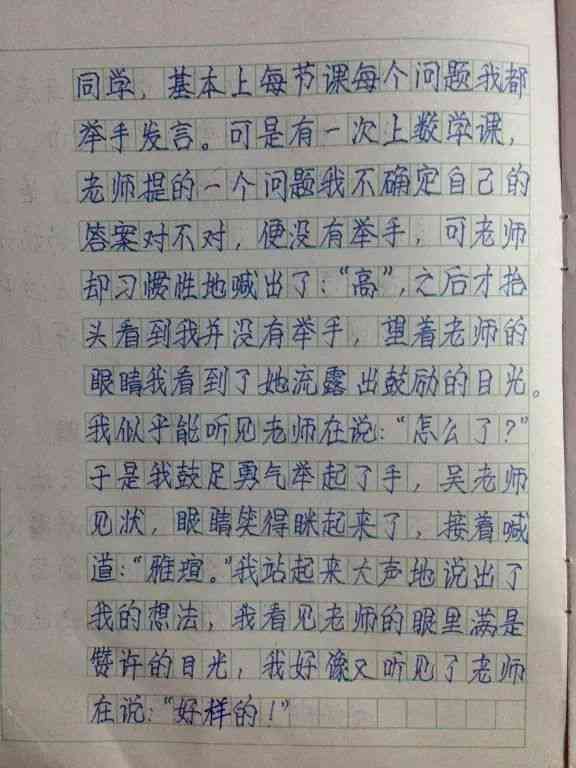 同学，基本上每节课每个问题我都
举手发言。可是有一次上数学课，
老师提的一个问题我不确定自己的
答案对不对，便没有举手，可老师
却习惯性地喊出了：“高”，之后才抬
头看到我并没有举手，望着老师的
眼睛我看到了她流露出鼓励的目光。
我似乎能听见老师在说：“怎么了？”
于是我鼓足勇气举起了手，吴老师
见状，眼睛笑得眯起来了，接着喊
道：“雅瑄。”我站起来大声地说出了
我的想法，我看见老师的眼里满是
赞许的目光，我好像又听见了老师
在说：“好样的！”